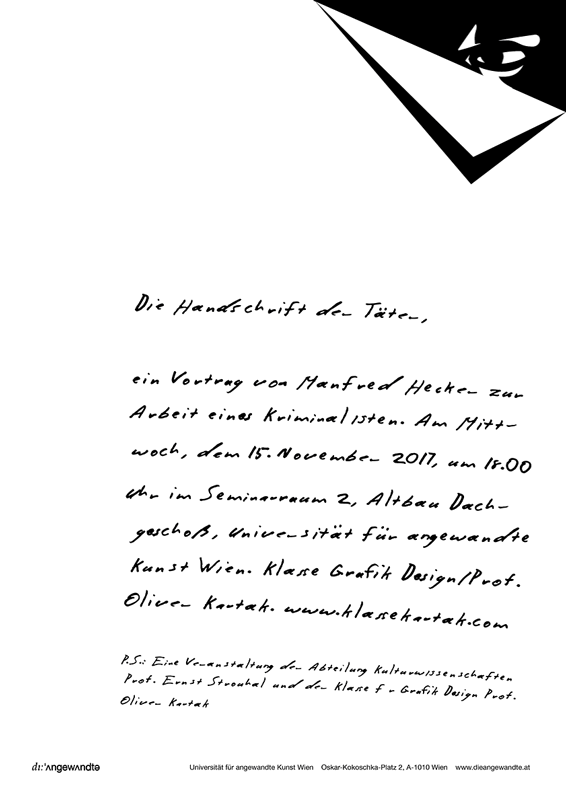 Die Handschrift der Täter,
ein Vortrag von Manfred Hecker zur
Arbeit eines Kriminalisten. Am Mitt-
woch, dem 15. November 2017, um 18.00
Uhr im Seminarraum 2, Altbau Dach-
geschoß, Universität für angewandte
Kunst Wien. Klasse Grafik Design/Prof.
Oliver Kartak. www.klassekartak.com
P.S.: Eine Veranstaltung der Abteilung Kulturwissenschaften
Prof. Ernst Strouhal und der Klasse f r Grafik Design Prof.
Oliver Kartak
di:'Angewandte
Universität für angewandte Kunst Wien Oskar-Kokoschka-Platz 2, A-1010 Wien www.dieangewandte.at